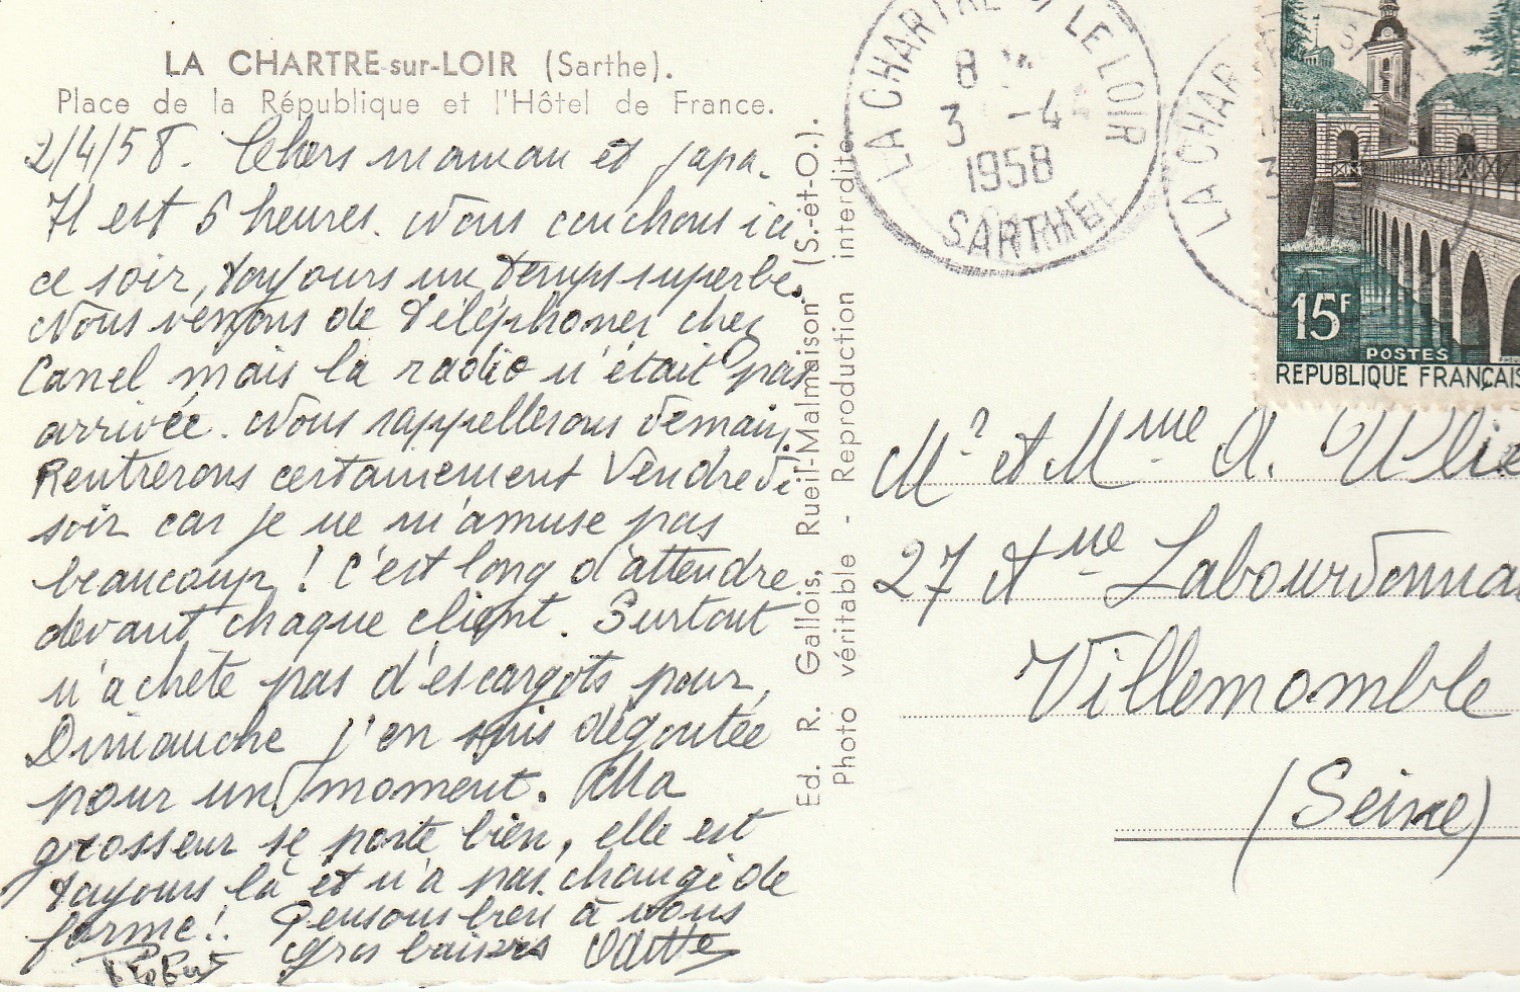 LA CHARTRE-sur-LOIR (Sarthe).
Place de la République et l'Hôtel de France.
2/4/58. Chers maman et papa.
Il est 6 heures. Nous couchons ici
ce soir, toujours un temps superbe.
Nous venons de téléphoner chez
Canel mais la radio n'était pas
arrivée. Nous rappellerons demain.
Rentrerons certainement Vendredi
soir car je ne m'amuse pas
beaucoup ! C'est long d'attendre
devant chaque client. Surtout
n'achète pas d'escargots pour
Dimanche j'en suis dégoutée
pour un moment. Ma
grosseur se porte bien, elle est
toujours là et n'a pas changé de
forme ! Pensons bien à vous
Gros baisers Odette
Robert
Ed. R. Gallois, Rueil-Malmaison (S.-et-O.).
Photo véritable - Reproduction interdite.
LA CHARTRE S/ LE LOIR
8
3 -4
1958
SARTHE
LA CHAR
15F
POSTES
REPUBLIQUE FRANÇAIS
Mr et Mme A.
27 Ane Labourdonnai
Villemomble
(Seine)